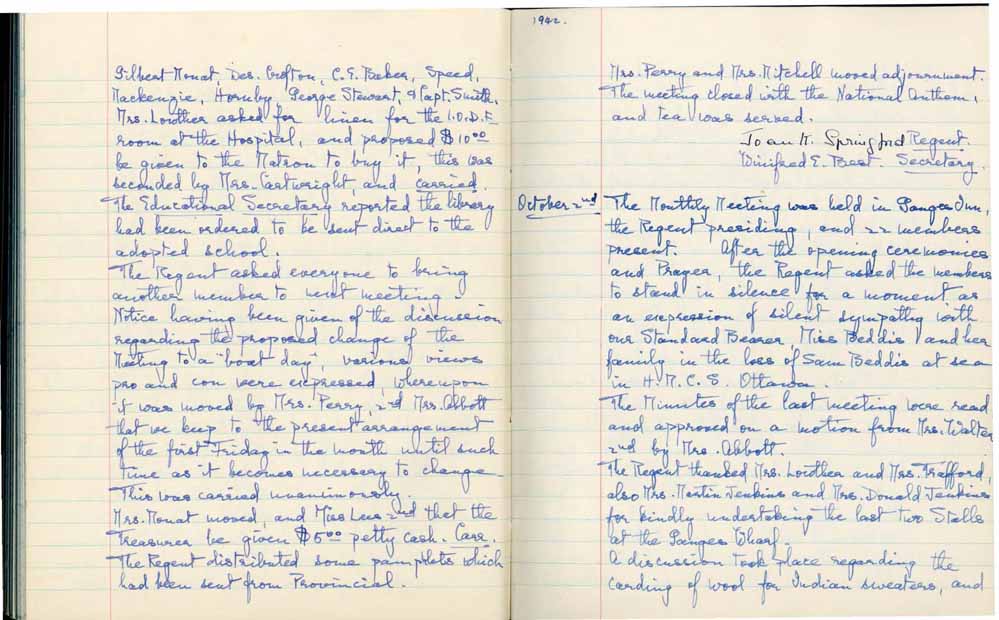 Gilbert Mouat, Des. Crofton, C.E. Baker, Speed,
Mackenzie, Hornby, George Stewart, & Capt. Smith.
Mrs. Lowther asked for linen for the I.O.D.E
room at the Hospital, and proposed $10.00
be given to the Matron to buy it, this was
seconded by Mrs. Cartwright, and carried.
The Educational Secretary reported the library
had been ordered to be sent direct to the
adopted school.
The Regent asked everyone to bring
another member to next meeting.
Notice having been given of the discussion
regarding the proposed change of the
Meeting to a "boat day", various views
pro and con were expressed, whereupon
it was moved by Mrs. Perry, 2nd Mrs. Abbott
that we keep to the present arrangement
of the first Friday in the month until such
time as it becomes necessary to change
This was carried unanimously.
Mrs. Mouat moved, and Miss Lees 2nd that the
Treasurer be given $5.00 petty cash. Carr.
The Regent distributed some pamphlets which
had been sent from Provincial.
1942.
Mrs. Perry and Mrs. Mitchell moved adjournment.
The meeting closed with the National Anthem,
and tea was served.
Joan M. Springford Regent.
Winifred E. Best. Secretary.
October 2nd The Monthly Meeting was held in Ganges Inn,
the Regent presiding, and 22 members
present. After the opening ceremonies
and Prayer, the Regent asked the members
to stand in silence for a moment as
an expression of silent sympathy with
our Standard Bearer, Miss Beddis and her
family in the loss of Sam Beddis at sea
in H.M.C.S. Ottawa.
The Minutes of the last meeting were read
and approved on a motion from Mrs. Walter
2nd by Mrs. Abbott.
The Regent thanked Mrs. Lowther and Mrs. Trafford,
also Mrs. Martin Jenkins and Mrs. Donald Jenkins
for kindly undertaking the last two Stalls
at the Ganges Wharf.
A discussion took place regarding the
carding of wool for Indian sweaters, and